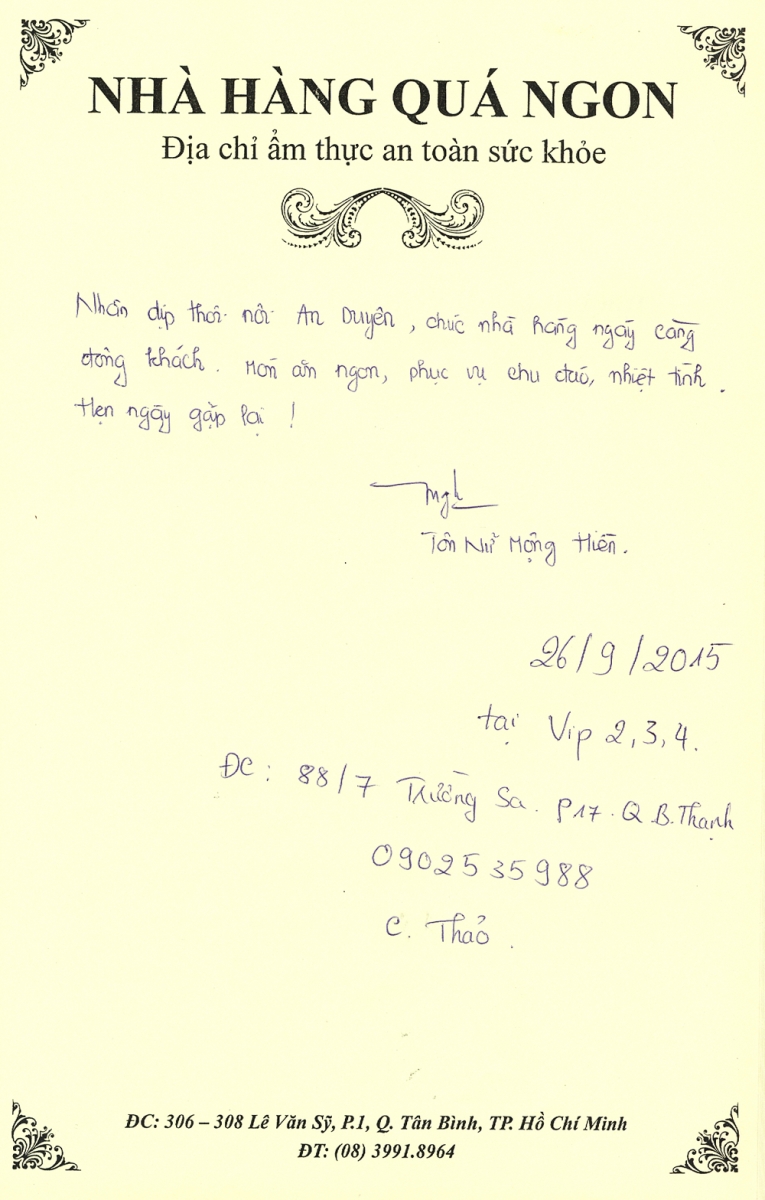 NHÀ HÀNG QUÁ NGON
Địa chỉ ẩm thực an toàn sức khỏe
Nhân dịp thôi nôi An Duyên, chúc nhà hàng ngày càng
đông khách. Món ăn ngon, phục vụ chu đáo, nhiệt tình.
Hẹn ngày gặp lại !
Tôn Nữ Mộng Hiền.
26/9/2015
tại Vip 2,3,4.
ĐC: 88/7 Trường Sa. P17. Q B.Thạnh
0902535988
C. Thảo.
ĐC: 306 – 308 Lê Văn Sỹ, P.1, Q. Tân Bình, TP. Hồ Chí Minh
ĐT: (08) 3991.8964